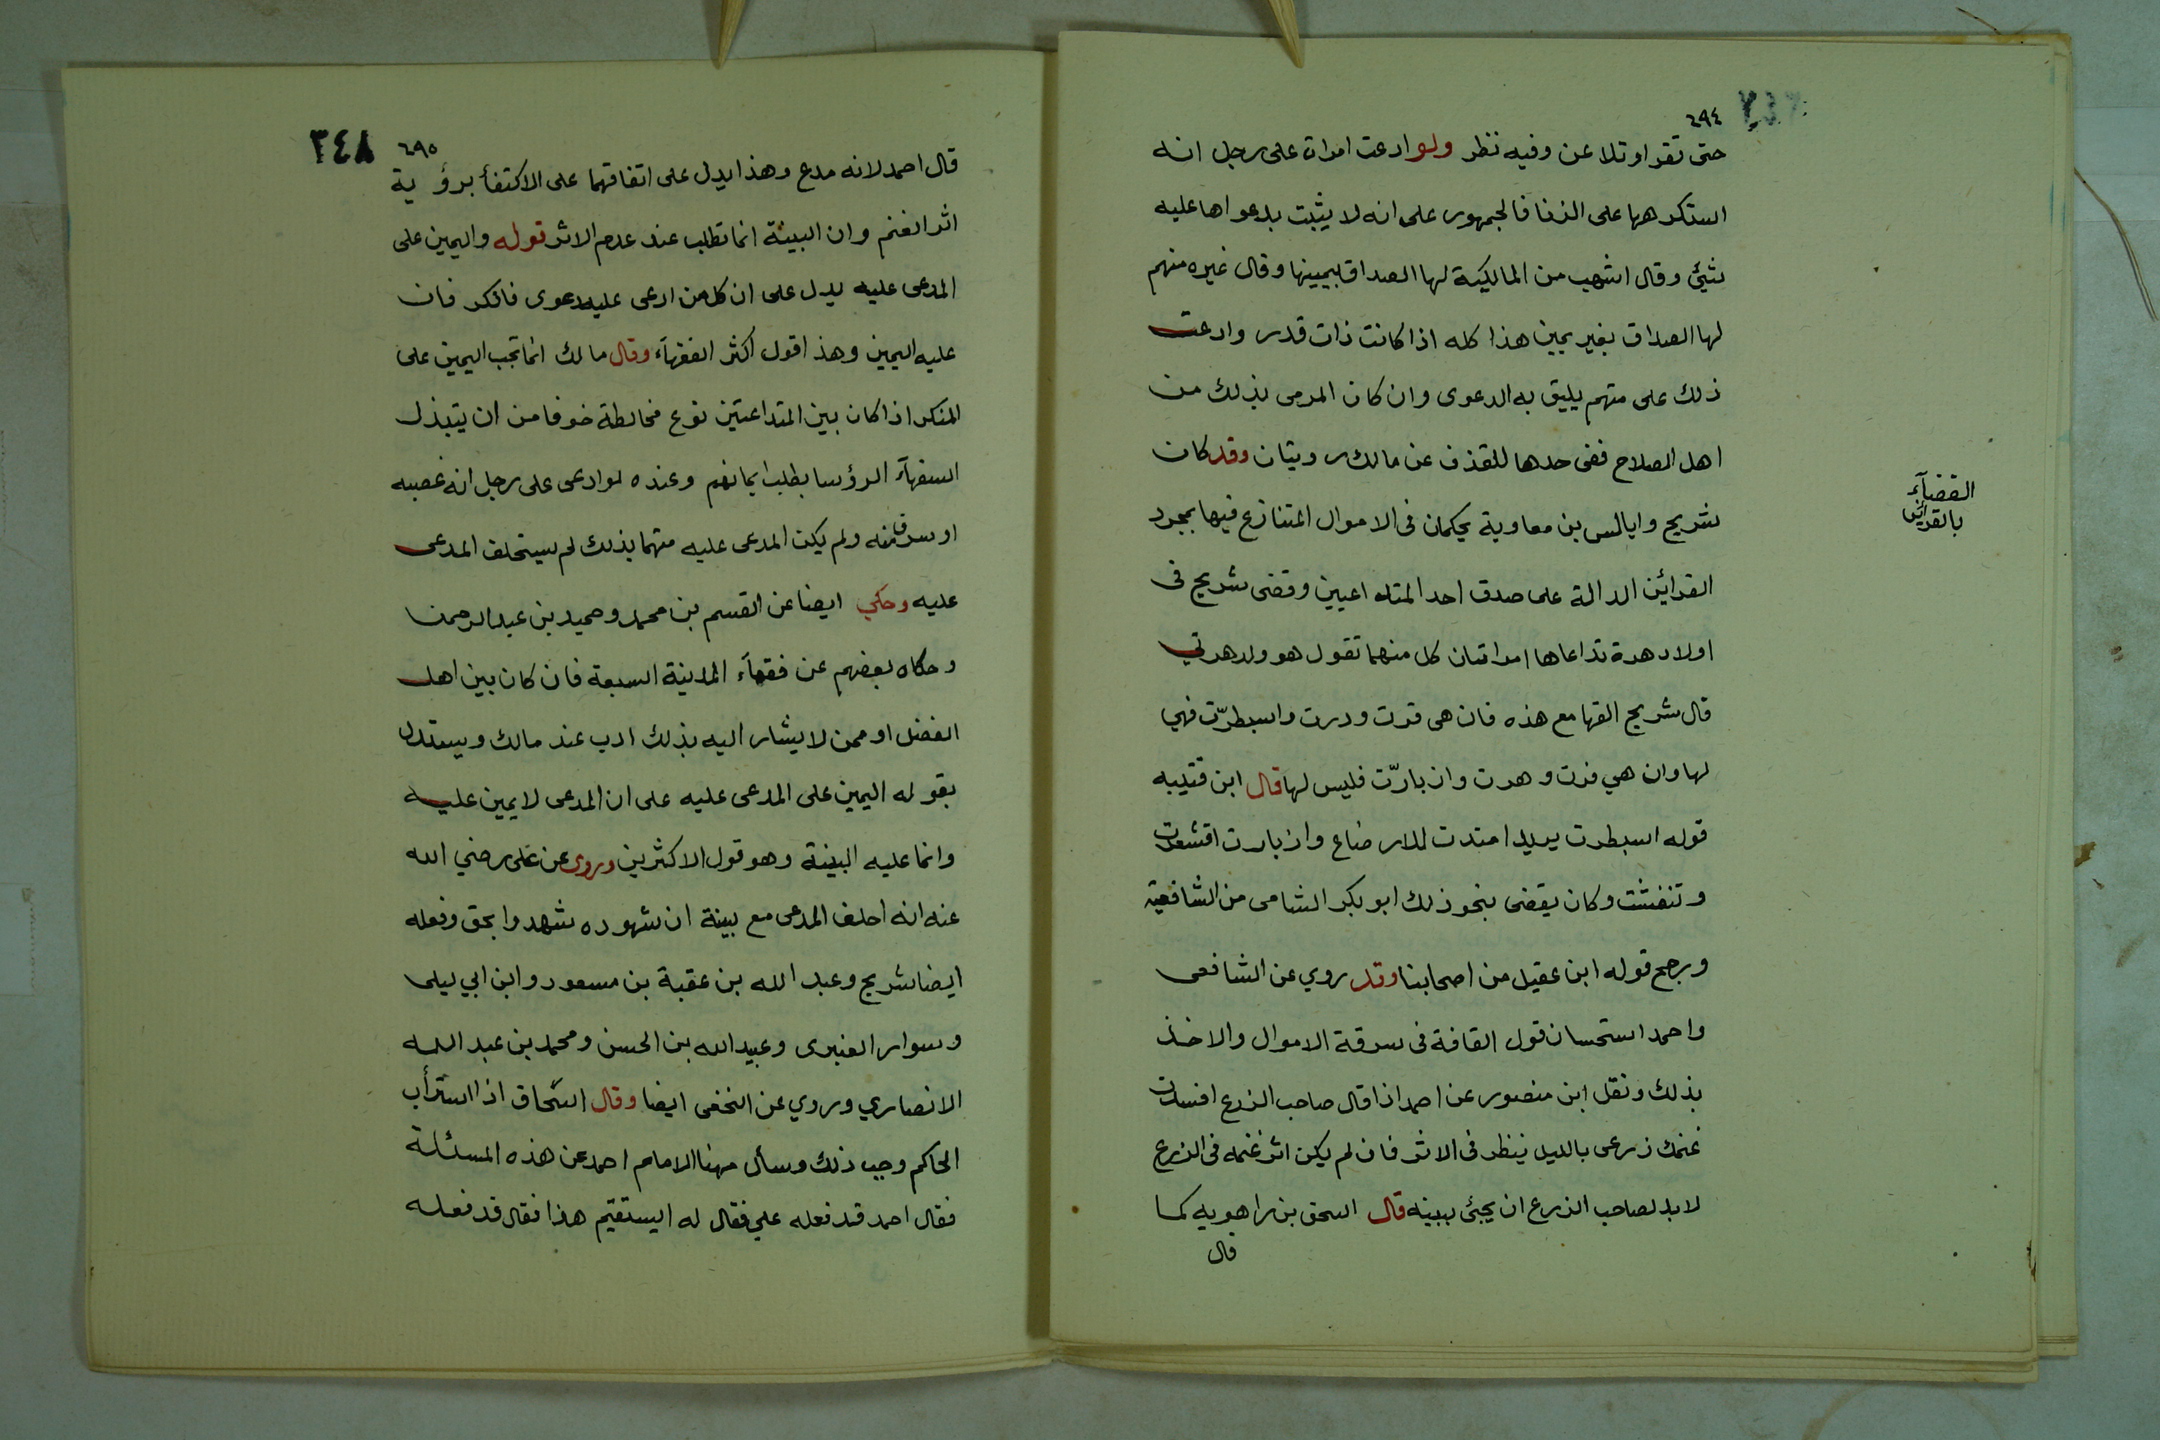 ٦٩٤
حتى تقر او تلاعن وفيه نظر ولو ادعت امراة على رجل انه
استكرهها على الزنا فالجمهور على انه لا يثبت بدعواها عليه
شيئ وقال اشهب من المالكية لها الصداق بيمينها وقال غيره منهم
لها الصداق بغير يمين هذا كله اذا كانت ذات قدر وادعت
ذلك على متهم يليق به الدعوى وان كان المرمى بذلك من
اهل الصلاح ففى حدها للقذف عن مالك روايتان وقد كان
شريح واياس بن معاوية يحكمان فى الاموال المتنازع فيها بمجرد
القرائن الدالة على صدق احد المتداعيين وقضى شريح فى
اولاد هرة تداعاها امراتان كل منهما تقول هو ولد هرتي
قال شريح القها مع هذه فان هى قرت ودرت واسبطرّت فهي
لها وان هي فرت وهرت وازبارّت فليس لها قال ابن قتيبه
قوله اسبطرت يريد امتدت للارضاع وازبارت اقشعرت
وتنفشت وكان يقضى بنحو ذلك ابو بكر الشامى من الشافعية
ورجح قوله ابن عقيل من اصحابنا وقد روي عن الشافعى
واحمد استحسان قول القافة فى سرقة الاموال والاخذ
بذلك ونقل ابن منصور عن احمد اذا قال صاحب الزرع افسدت
غنمك زرعى بالليل ينظر فى الاثر فان لم يكن اثر غنمه فى الزرع
لابد لصاحب الزرع ان يجئ ببينه قال اسحق بن راهويه كما
قال
القضآء
بالقرائن
٣٤٨
٦٩٥
قال احمد لانه مدع وهذا يدل على اتفاقهما على الاكتفأ برؤية
اثر الغنم وان البينة انما تطلب عند عدم الاثر قوله واليمين على
المدعى عليه يدل على ان كل من ادعى عليه دعوى فانكر فان
عليه اليمين وهذا قول اكثر الفقهآء وقال مالك انما تجب اليمين على
المنكر اذا كان بين المتداعتين نوع مخالطة خوفا من ان يتبذل
السفهآء الرؤسا بطلب ايمانهم وعنده لو ادعى على رجل انه غصبه
او سرق منه ولم يكن المدعى عليه متهما بذلك لم يستحلف المدعى
عليه وحكي ايضا عن القسم بن محمد وحميد بن عبد الرحمن
وحكاه بعضهم عن فقهآء المدينة السبعة فان كان بين اهل
الفضل او ممن لا يشار اليه بذلك ادب عند مالك ويستدل
بقوله اليمين على المدعى عليه على ان المدعى لا يمين عليه
وانما عليه البينة وهو قول الاكثرين وروى عن على رضي الله
عنه انه احلف المدعى مع بينة ان شهوده شهدوا بحق وفعله
ايضا شريح وعبد الله بن عقبة بن مسعود وابن ابي ليلى
وسوار العنبرى وعبيد الله بن الحسن ومحمد بن عبد الله
الانصاري وروي عن النخعى ايضا وقال اسحاق اذا استرأب
الحاكم وجب ذلك وسأل مهنا الامام احمد عن هذه المسئلة
فقال احمد قد فعله علي فقال له ايستقيم هذا فقال قد فعله